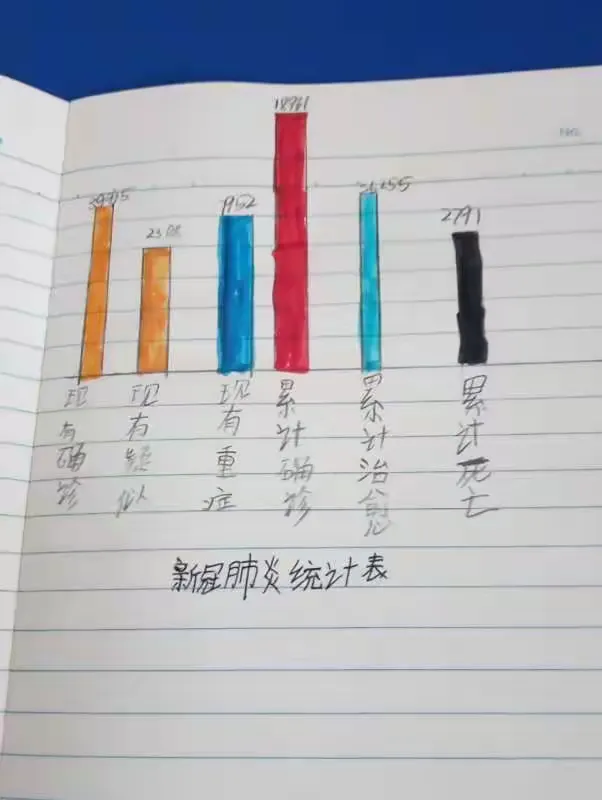 1952
2791
现有确诊
现有疑似
现有重症
累计确诊
累计治愈
累计死亡
新冠肺炎统计表